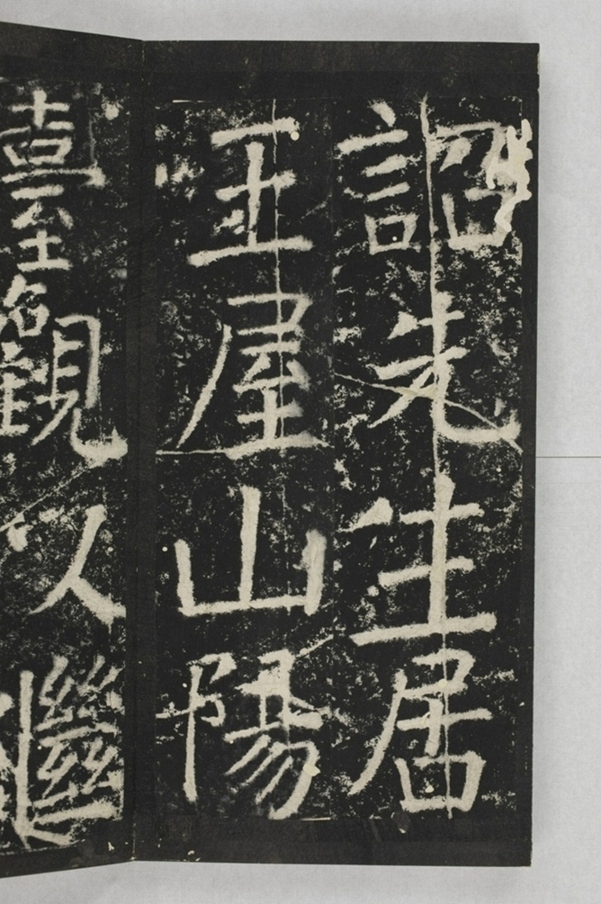 詔先生居
王屋山陽
臺觀以繼